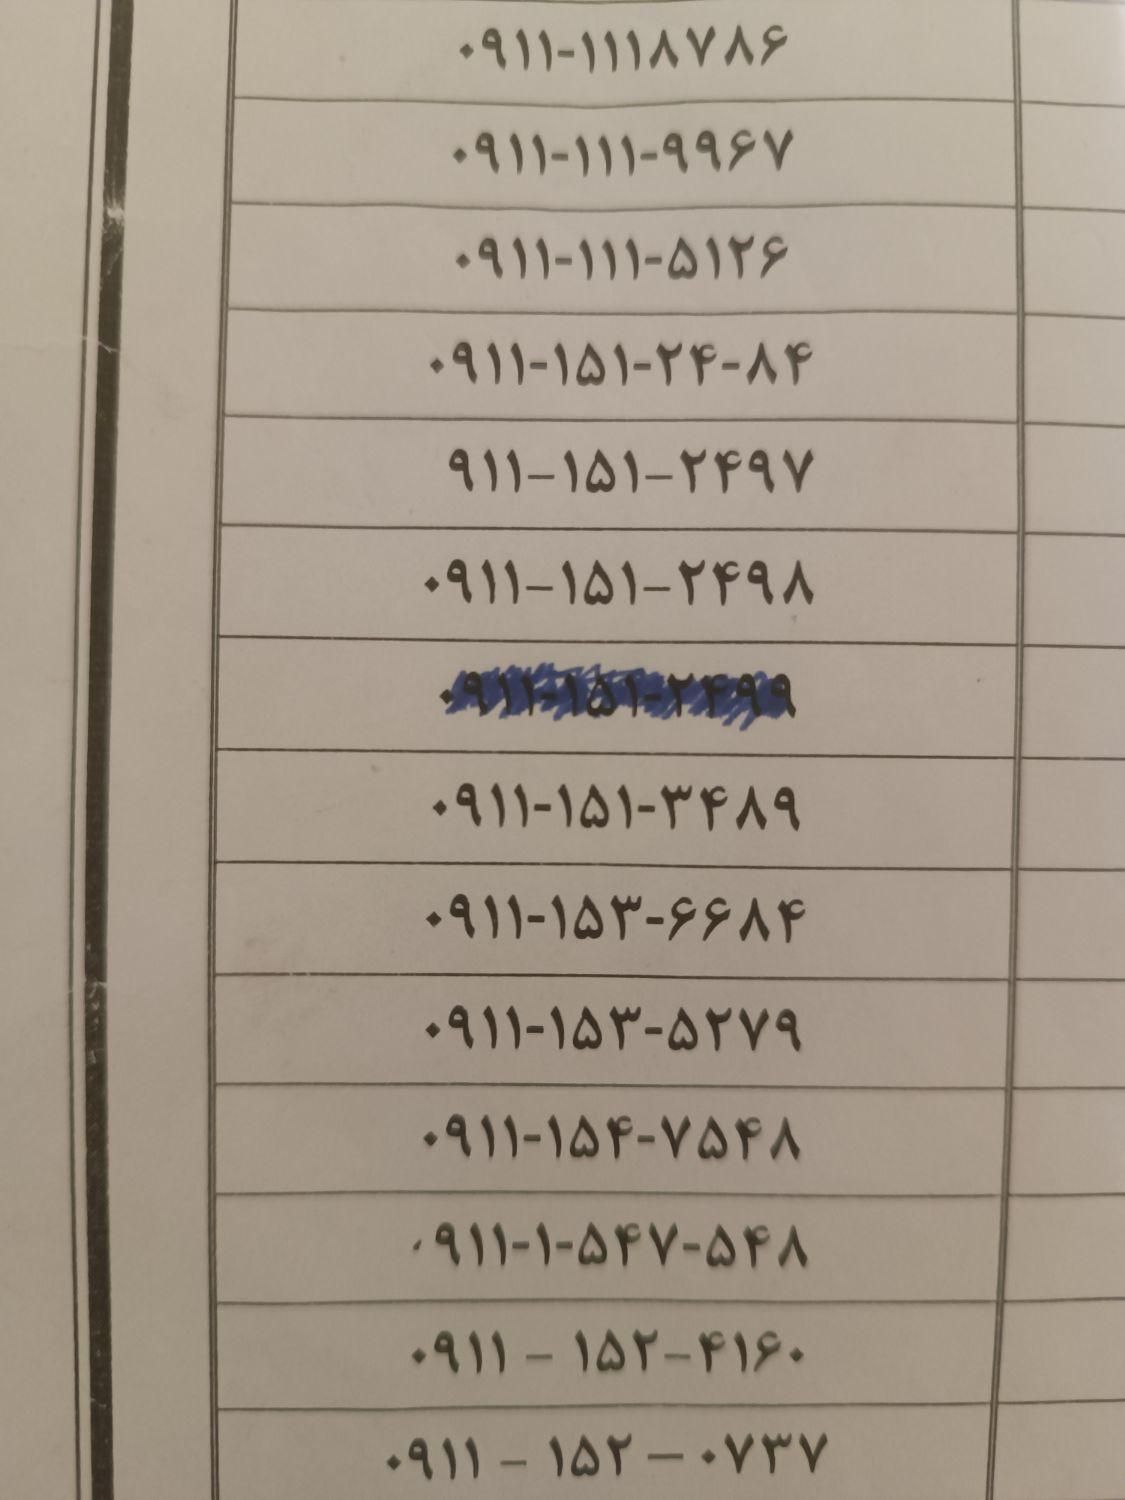 ۰۹۱۱-۱۱۱۸۷۸۶
۰۹۱۱-۱۱۱-۹۹۶۷
۰۹۱۱-۱۱۱-۵۱۲۶
۰۹۱۱-۱۵۱-۲۴-۸۴
۹۱۱-۱۵۱-۲۴۹۷
۰۹۱۱-۱۵۱-۲۴۹۸
۰۹۱۱-۱۵۱-۲۴۹۹
۰۹۱۱-۱۵۱-۳۴۸۹
۰۹۱۱-۱۵۳-۶۶۸۴
۰۹۱۱-۱۵۳-۵۲۷۹
۰۹۱۱-۱۵۴-۷۵۴۸
۰۹۱۱-۱-۵۴۷-۵۴۸
۰۹۱۱ - ۱۵۲-۴۱۶۰
۰۹۱۱ - ۱۵۲ - ۰۷۳۷